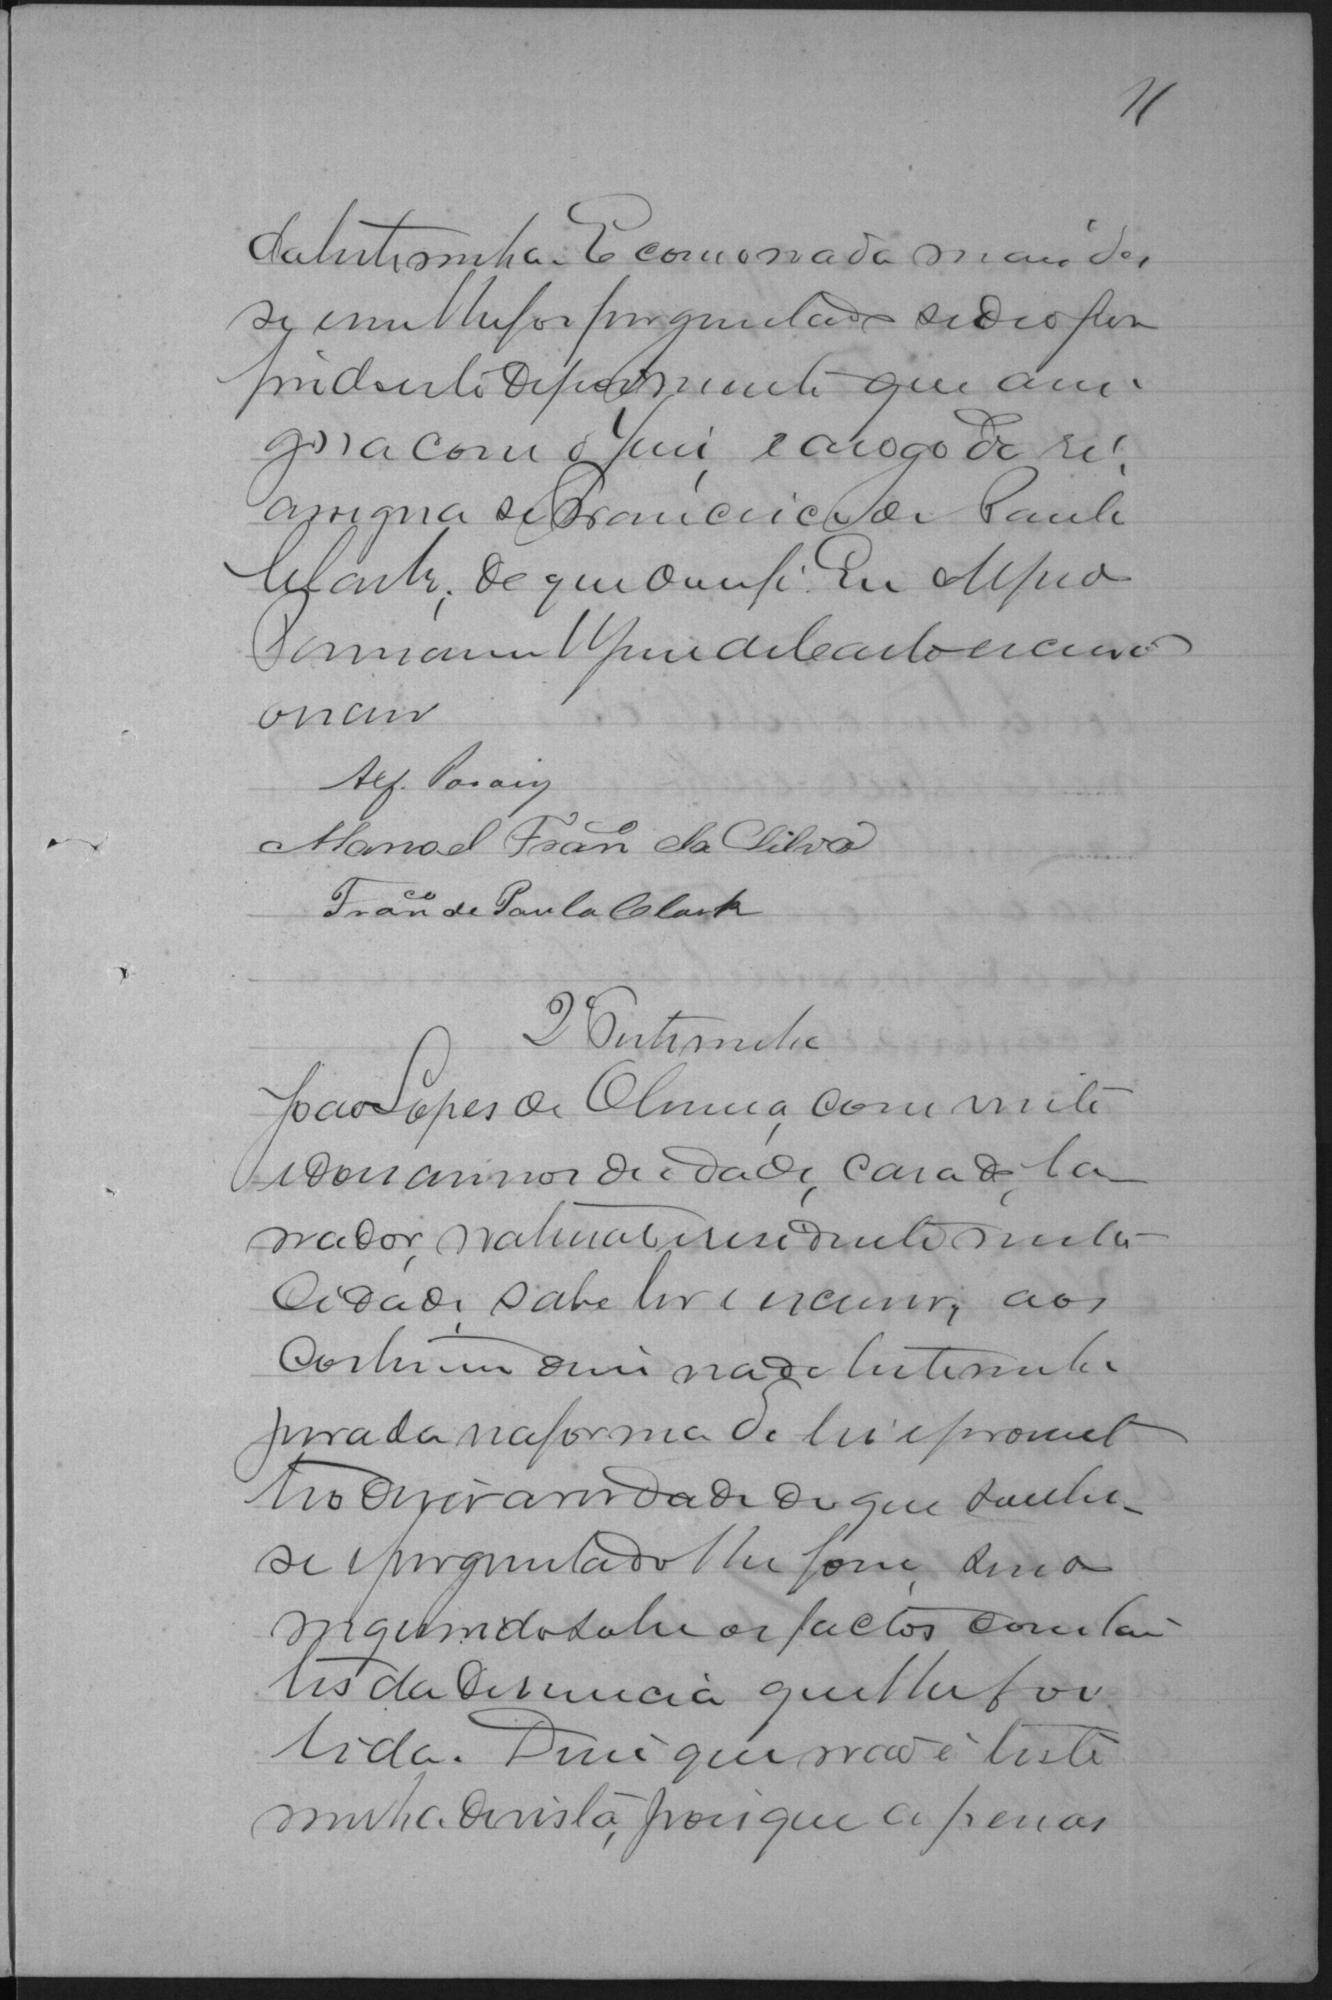 11
da testemunha. E como nada mais dis
se e nem lhe foi perguntado se deo por
findo este depoimento que assi
gna com o Juiz, e a rogo da ré
assigna se Francisco de Paula
Clark; de que dou fé. Eu
escrivão
Manoel Fran.co da Silva
Fran.co de Paula Clark
2ª Testemunha
João Lopes de Oliveira, com vinte
e dous annos de idade, casado, la
vrador, natural e residente nesta
Cidade, sabe ler e escrever, aos
costumes disse nada testemunha
jurada na forma da lei e promet
teo dizer a verdade do que soubes
se e perguntado lhe fosse, sendo
inquirido sobre os factos constan
tes da denuncia que lhe foi
lida. Disse que não é teste
munha de vista, porque apenas